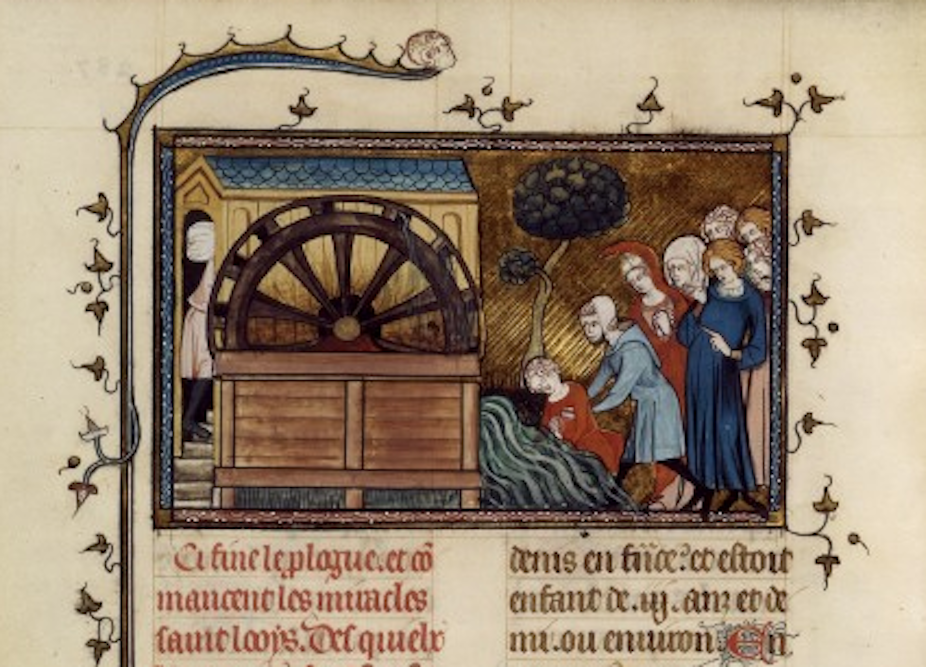 Ci fine le plogue. et cõ
mancent les miracles
saint looys. Des quielx
denis en fñce: et estoit
enfant de .iij. anz et de
mi. ou enuiron En